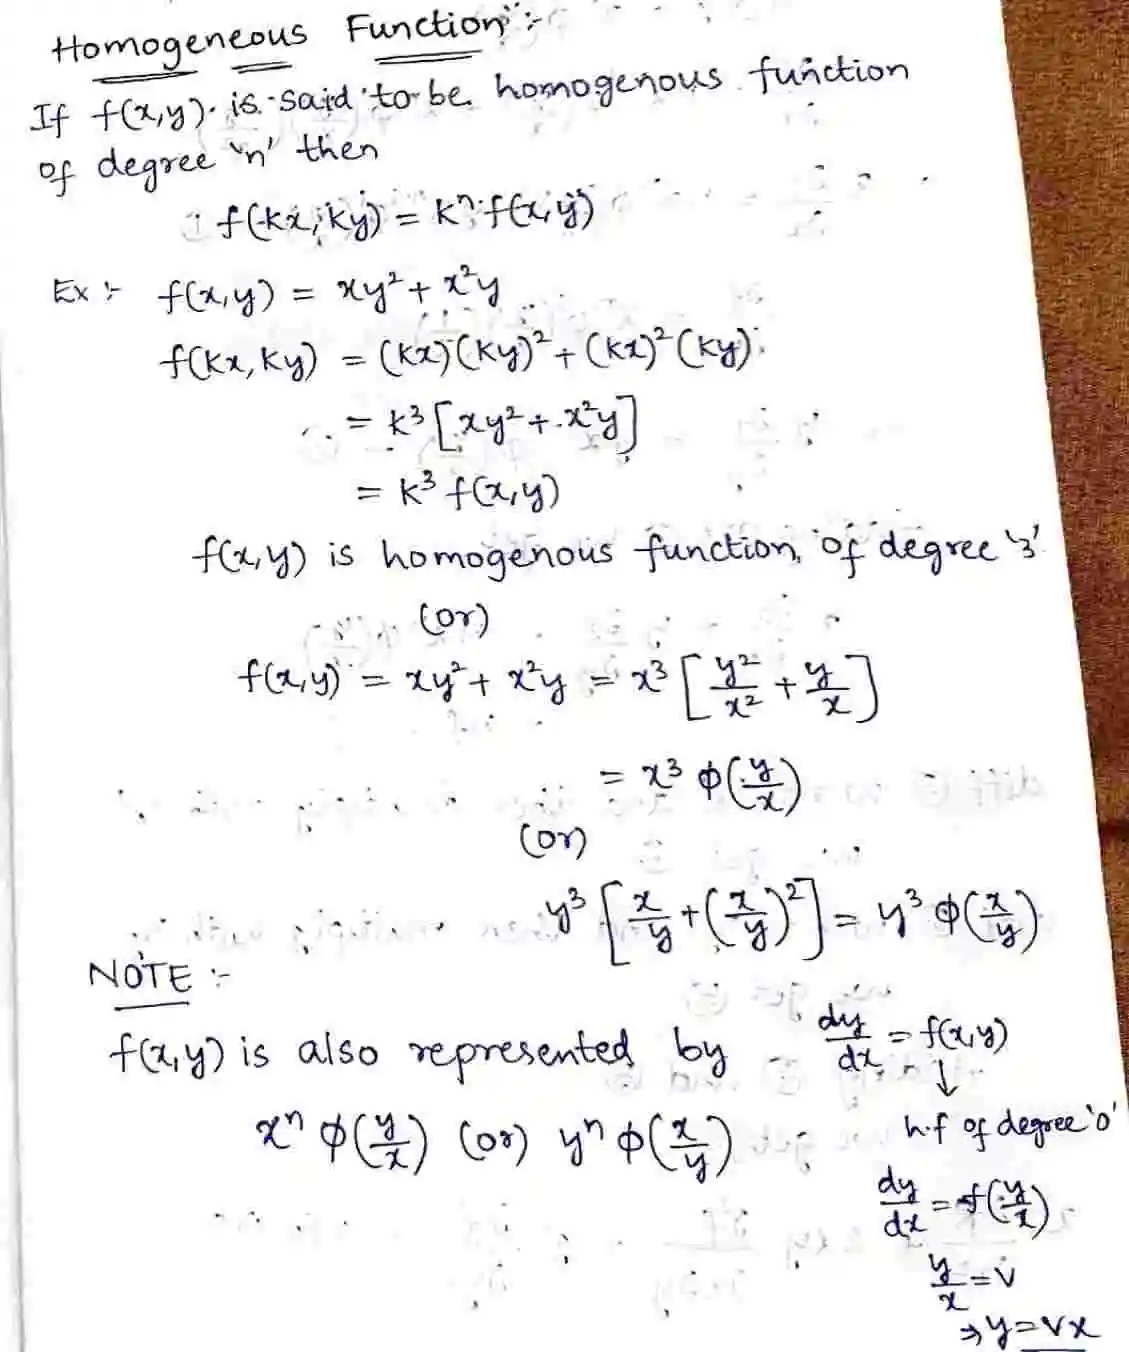 Homogeneous Function :-
If f(x,y) is said to be homogenous function
of degree 'n' then
f(kx, ky) = kⁿ f(x,y)
Ex :- f(x,y) = xy² + x²y
f(kx, ky) = (kx)(ky)² + (kx)²(ky)
= k³ [xy² + x²y]
= k³ f(x,y)
f(x,y) is homogenous function of degree '3'
(or)
f(x,y) = xy² + x²y = x³ [y²/x² + y/x]
= x³ φ(y/x)
(or)
y³ [x/y + (x/y)²] = y³ φ(x/y)
NOTE :-
f(x,y) is also represented by
xⁿ φ(y/x) (or) yⁿ φ(x/y)
dy/dx = f(x,y)
↓
h.f of degree '0'
dy/dx = f(y/x)
y/x = v
⇒ y = vx